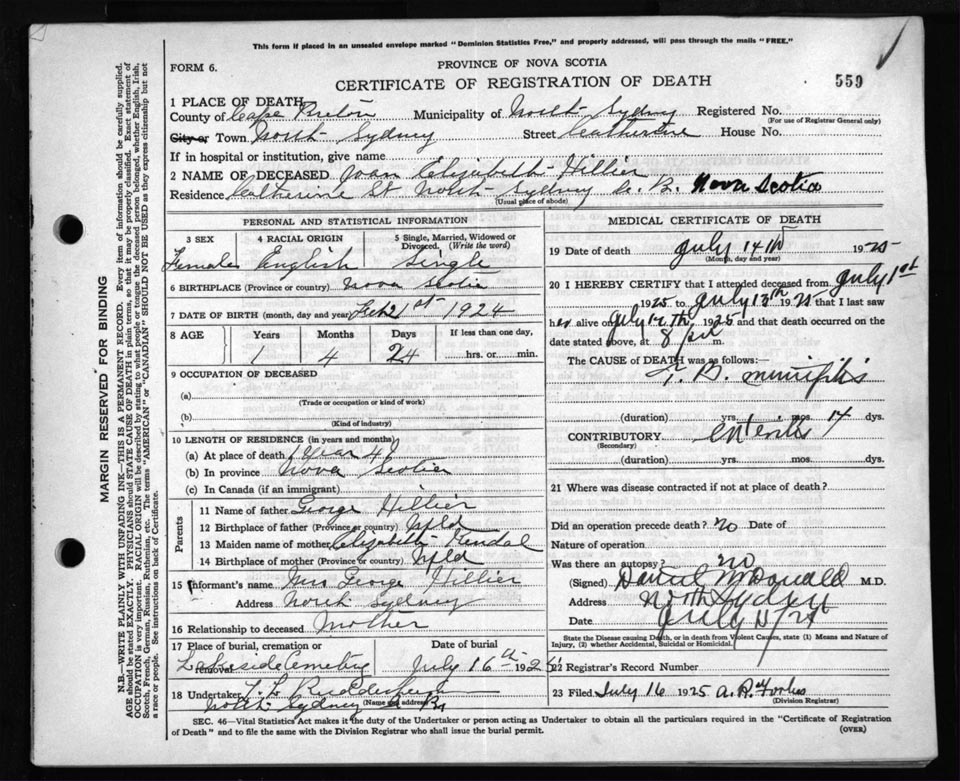 This form if placed in an unsealed envelope marked "Dominion Statistics Free," and properly addressed, will pass through the mails "FREE."
FORM 6.
PROVINCE OF NOVA SCOTIA
CERTIFICATE OF REGISTRATION OF DEATH
559
1 PLACE OF DEATH
County of Cape Breton Municipality of North Sydney Registered No.
(For use of Registrar General only)
City or Town North Sydney Street Catherine House No.
If in hospital or institution, give name
2 NAME OF DECEASED Joan Elizabeth Hillier
Residence Catherine St North Sydney C. B. Nova Scotia
(Usual place of abode)
PERSONAL AND STATISTICAL INFORMATION
3 SEX 4 RACIAL ORIGIN 5 Single, Married, Widowed or Divorced. (Write the word)
Female English Single
6 BIRTHPLACE (Province or country) Nova Scotia
7 DATE OF BIRTH (month, day and year) 21st 1924
8 AGE Years Months Days If less than one day,
1 4 24 hrs. or min.
9 OCCUPATION OF DECEASED
(a)
(Trade or occupation or kind of work)
(b)
(Kind of industry)
10 LENGTH OF RESIDENCE (in years and months)
(a) At place of death 1 year 4
(b) In province Nova Scotia
(c) In Canada (if an immigrant)
Parents
11 Name of father George Hillier
12 Birthplace of father (Province or country) Nfld
13 Maiden name of mother Elizabeth Kendal
14 Birthplace of mother (Province or country) Nfld
15 Informant's name Mrs George Hillier
Address North Sydney
16 Relationship to deceased Mother
17 Place of burial, cremation or removal Date of burial
Lakeside Cemetery July 16th 1925
18 Undertaker
North Sydney
(Name and address)
MEDICAL CERTIFICATE OF DEATH
19 Date of death July 14th 1925
(Month, day and year)
20 I HEREBY CERTIFY that I attended deceased from July 1st
1925 to July 13th 1925 that I last saw
her alive on July 1925 and that death occurred on the
date stated above, at 8 m.
The CAUSE of DEATH was as follows:
T. B.
(duration) yrs. mos. 14 dys.
CONTRIBUTORY Enteritis
(Secondary)
(duration) yrs. mos. dys.
21 Where was disease contracted if not at place of death?
Did an operation precede death? no Date of
Nature of operation
Was there an autopsy? no
(Signed) Daniel McDonald M.D.
Address North Sydney
Date July
State the Disease causing Death, or in death from Violent Causes, state (1) Means and Nature of
Injury, (2) whether Accidental, Suicidal or Homicidal.
22 Registrar's Record Number
23 Filed July 16 1925 A. R. Forbes
(Division Registrar)
SEC. 46—Vital Statistics Act makes it the duty of the Undertaker or person acting as Undertaker to obtain all the particulars required in the "Certificate of Registration
of Death" and to file the same with the Division Registrar who shall issue the burial permit.
(OVER)
MARGIN RESERVED FOR BINDING
N.B.—WRITE PLAINLY WITH UNFADING INK—THIS IS A PERMANENT RECORD. Every item of information should be carefully supplied.
AGE should be stated EXACTLY. PHYSICIANS should STATE CAUSE OF DEATH in plain terms, so that it may be properly classified. Exact statement of
OCCUPATION is very important. RACIAL ORIGIN will be described by stating to what people or tongue the deceased person belonged, whether English, Irish,
Scotch, French, German, Russian, Ruthenian, etc. The terms "AMERICAN" or "CANADIAN" SHOULD NOT BE USED as they express citizenship but not
a race or people. See instructions on back of Certificate.